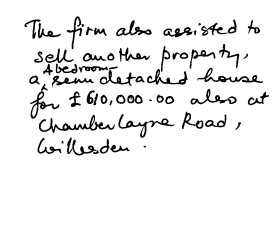 The firm also assisted to
sell another property,
a 4 bedroom semi detached house
for £610,000.00 also at
Chamberlayne Road,
Willesden.